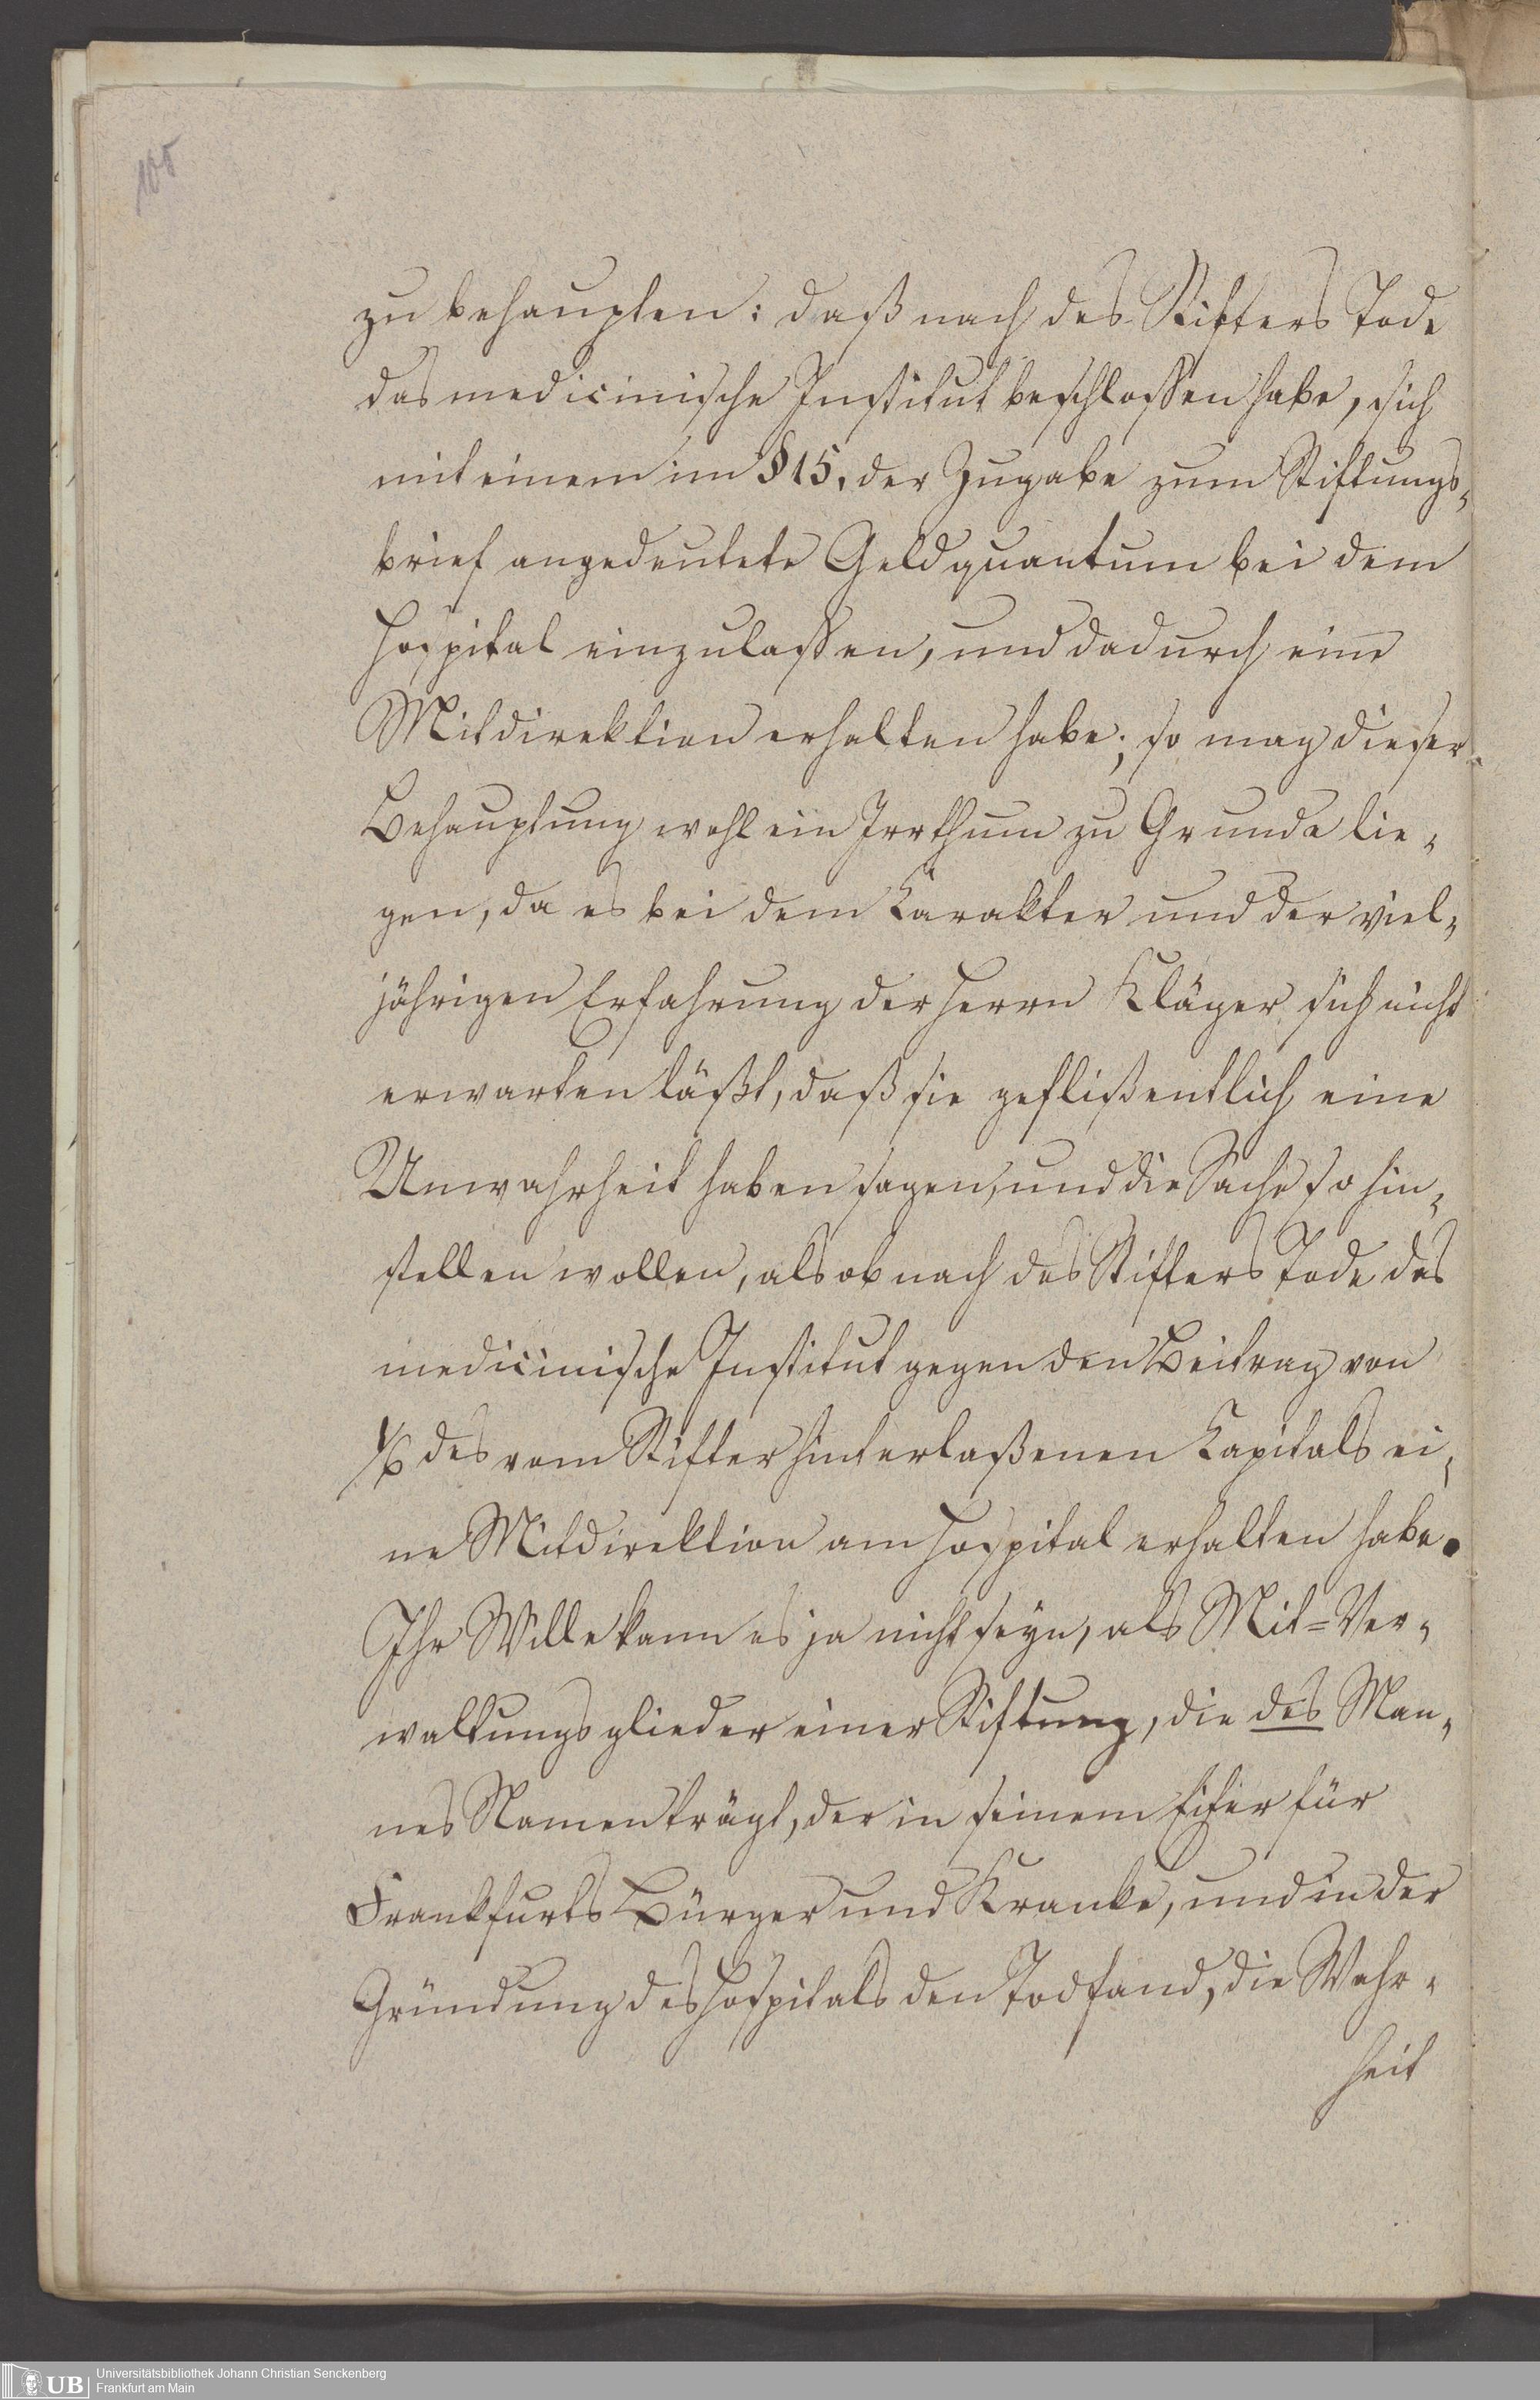 105
zu behaupten: daß nach des Stifters Tode
das medicinische Institut beschlossen habe, sich
mit einem im § 15. der Zugabe zum Stiftungs-
brief angedeutete Geldquantum bei dem
Hospital einzulassen, und dadurch eine
Mitdirektion erhalten habe; so mag dieser
Behauptung wohl ein Irrthum zu Grunde lie-
gen, da es bei dem Karakter und der viel-
jährigen Erfahrung der Herrn Kläger sich nicht
erwarten läßt, daß sie geflißentlich eine
Unwahrheit haben sagen, und die Sache so hin-
stellen wollen, als ob nach des Stifters Tode das
medicinische Institut gegen den Beitrag von
1/6 des vom Stifter hinterlaßenen Kapitals ei-
ne Mitdirektion am Hospital erhalten habe.
Ihr Wille kann es ja nicht seyn, als Mit=Ver-
waltungsglieder einer Stiftung, die des Man-
nes Namen trägt, der in seinem Eifer für
Frankfurts Bürger und Kranke, und in der
Gründung des Hospitals den Tod fand, die Wahr-
heit
UB
Universitätsbibliothek Johann Christian Senckenberg
Frankfurt am Main